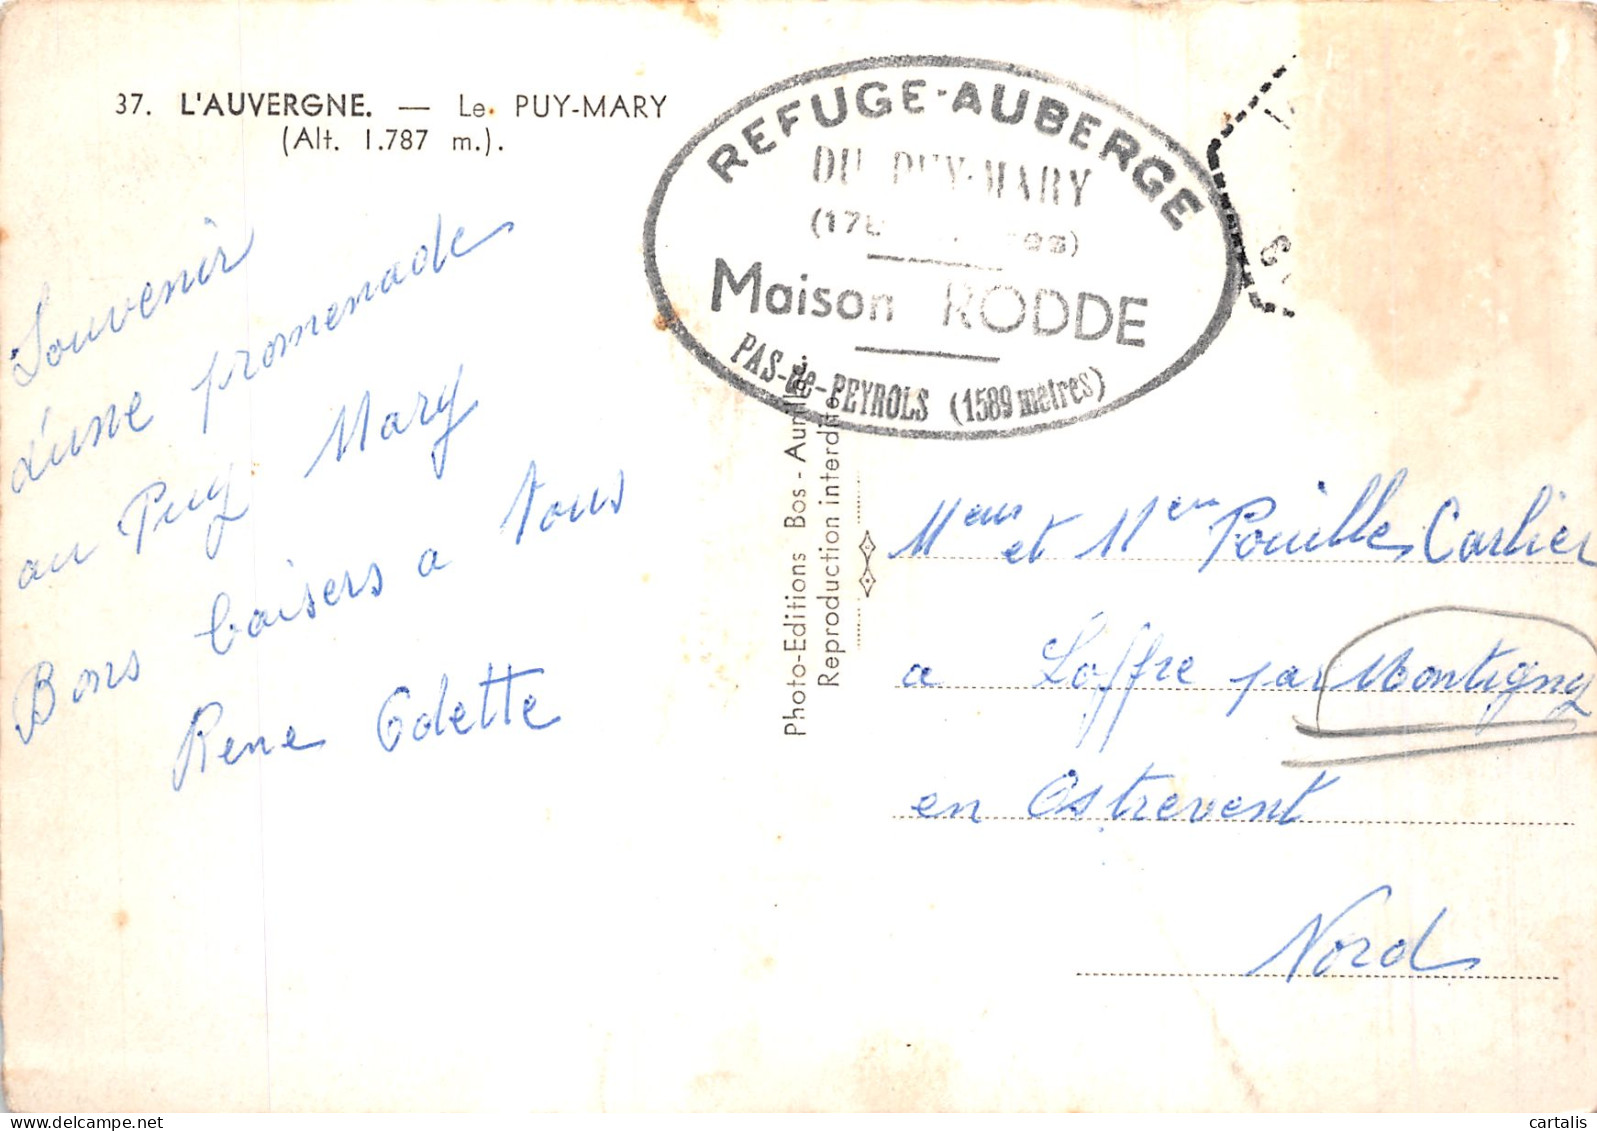 37. L'AUVERGNE. — Le PUY-MARY
(Alt. 1.787 m.).
REFUGE-AUBERGE
DU PUY-MARY
Maison RODDE
PAS-de-PEYROLS (1589 mètres)
Souvenir
d'une promenade
au Puy Mary
Bons baisers a tous
Rene Odette
Photo-Editions Bos - Aurillac
Reproduction interdite
et Pouille Carlier
a Loffre par Montigny
en Ostrevent
Nord
cartalis